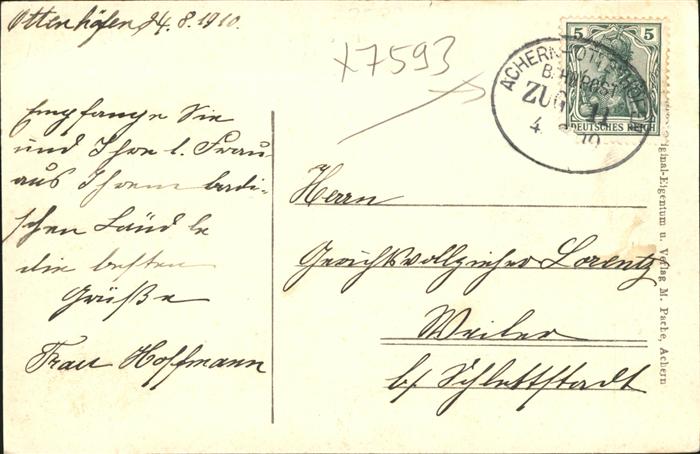 Ottenhöfen 4.8.1910.
Empfangen Sie
und Ihre l. Frau
aus Ihrem badi-
schen Ländle
die besten
Grüße
Frau Hoffmann
x7593
5 5
DEUTSCHES REICH
ACHERN-OTTENHÖFEN
BAHNPOST
ZUG 11
4. 8. 10
Herrn
Gerichtsvollzieher Lorentz
Weiler
b/ Schlettstadt
Original-Eigentum u. Verlag M. Pache, Achern